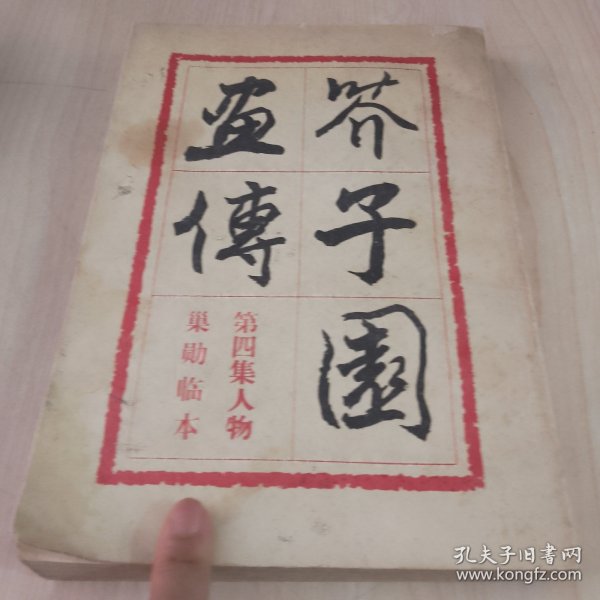 芥子園
畫傳
第四集人物
巢勛临本
孔夫子旧書网
www.kongfz.com